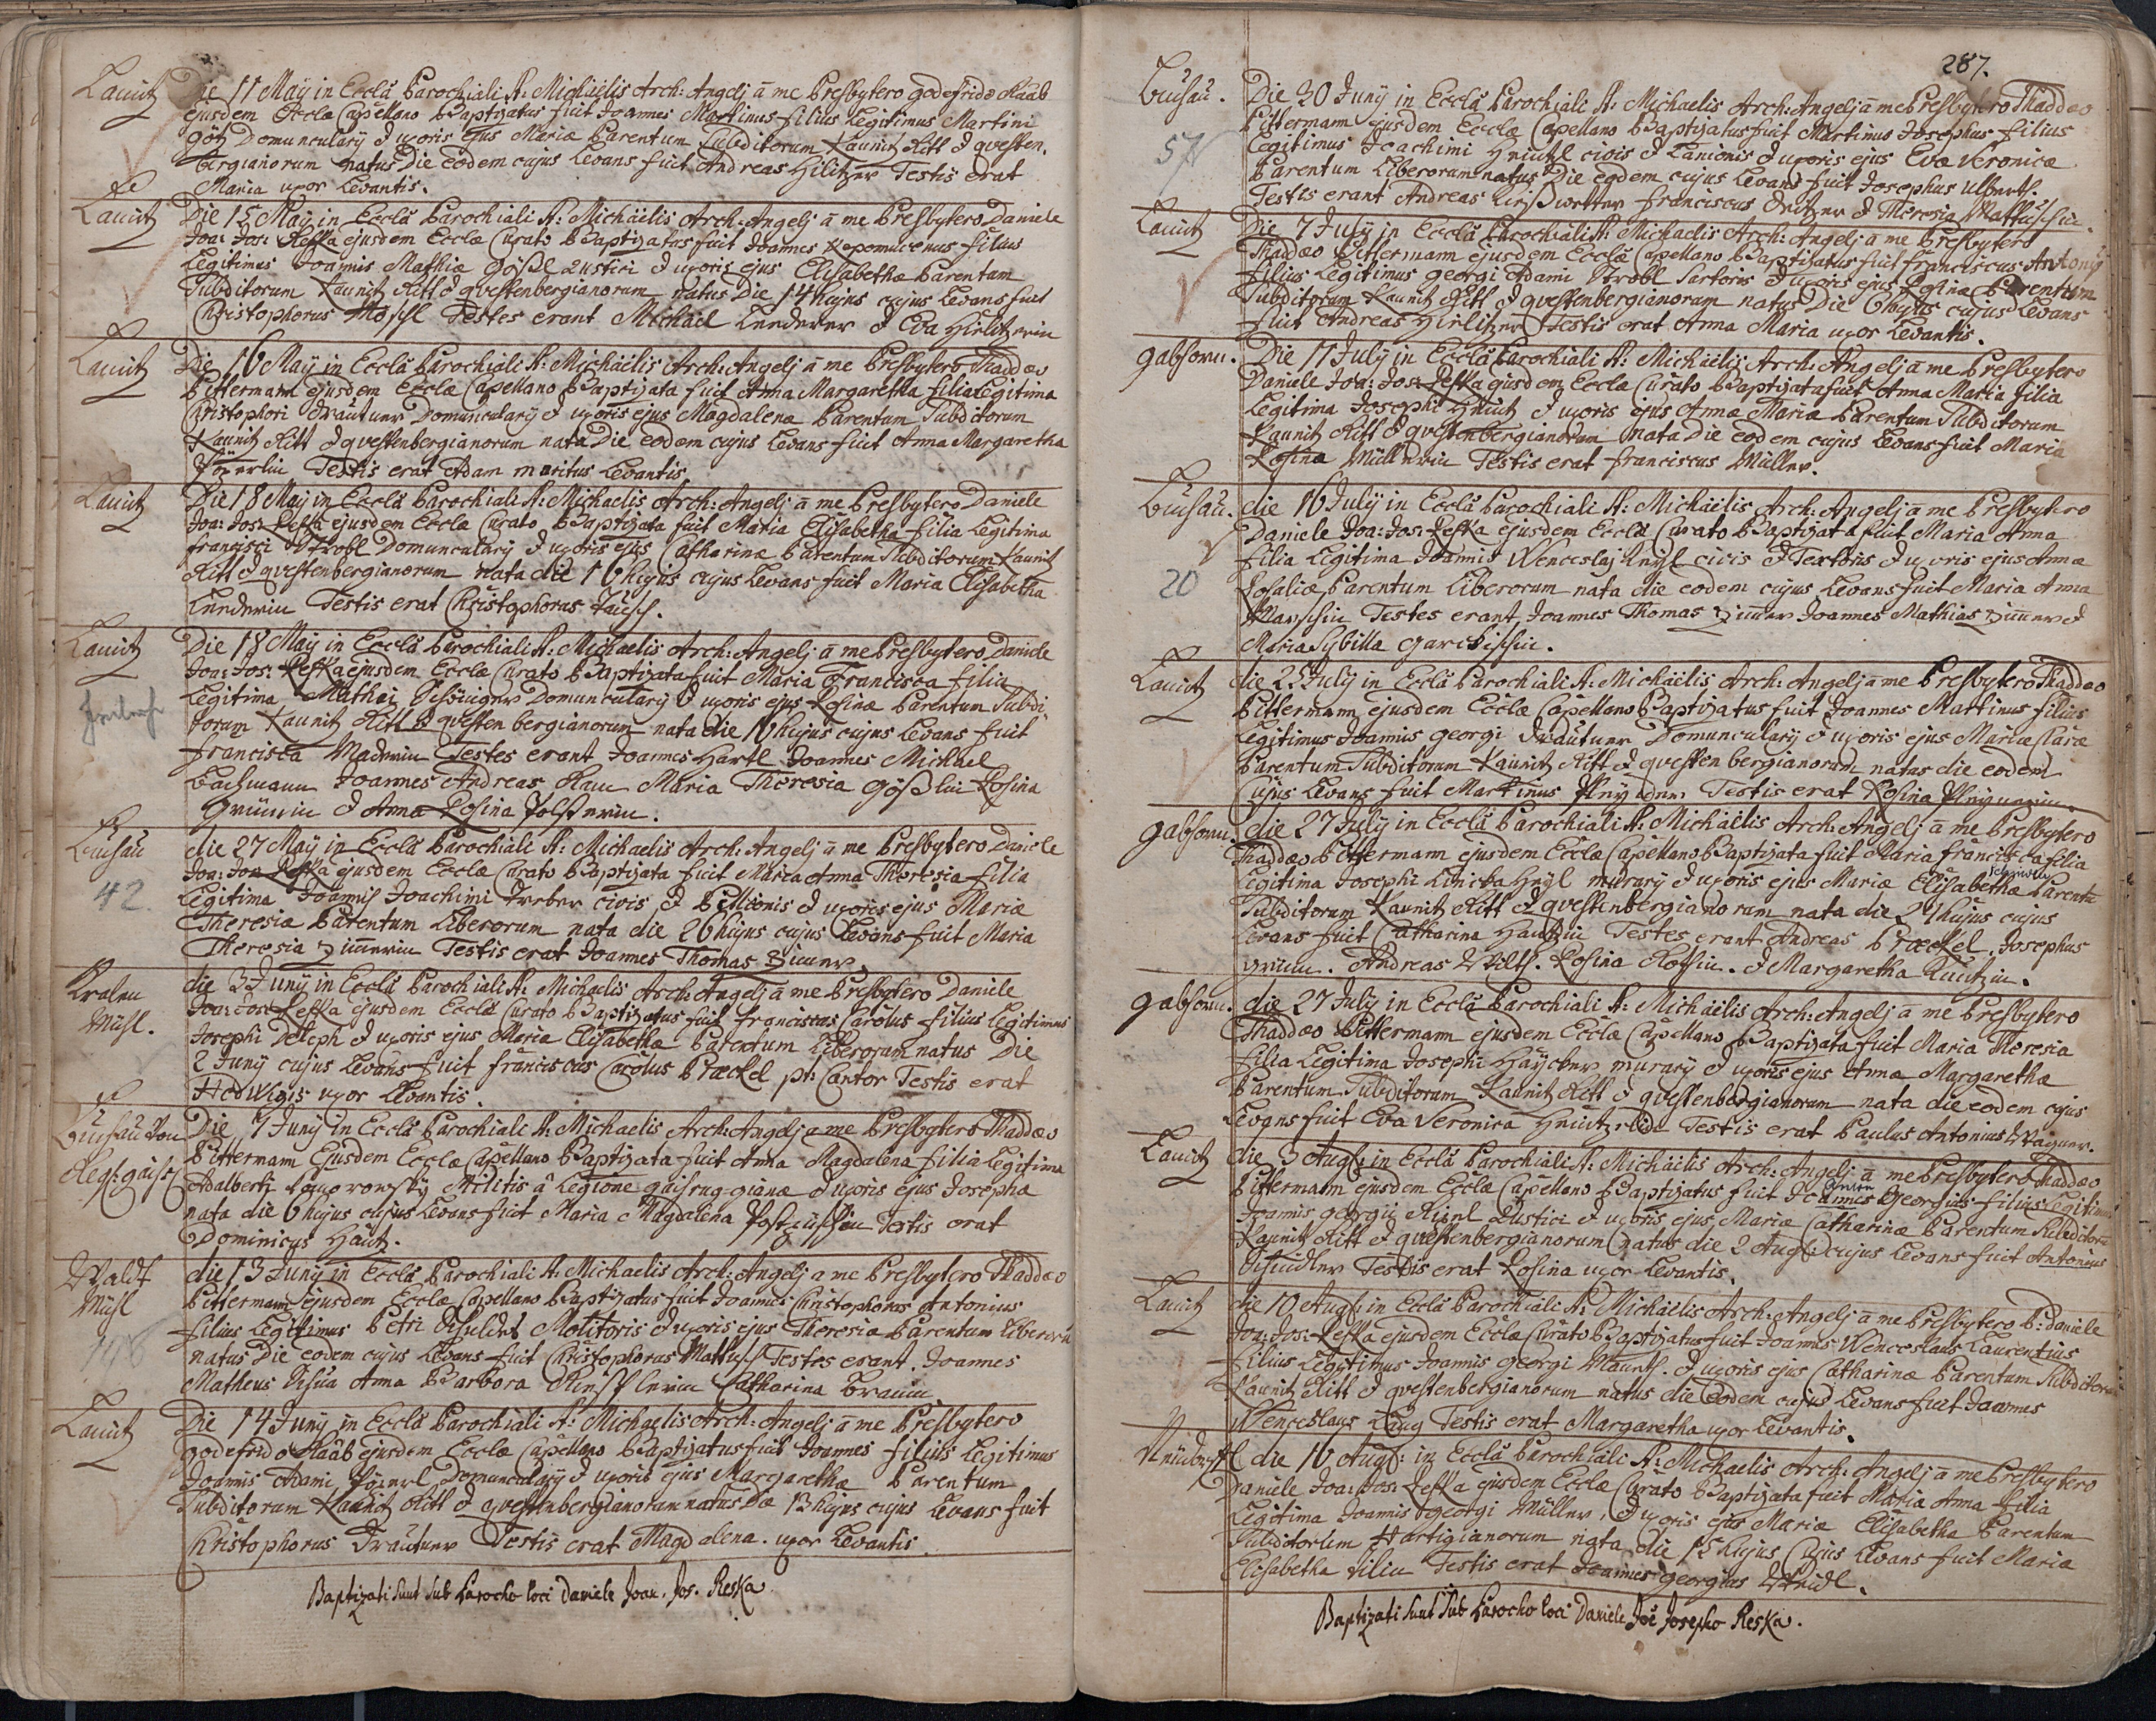 Lauitz
Die 11 Maÿ in Ecclâ Parochiali S: Michäelis Arch: Angelj â me Presbytero Godefrido Raab
ejusdem Eccle Capellano Baptizatus fuit Joannes Martinus filius Legitimus Martini
Götz Domuncularÿ & uxoris ejus Mariæ Parentum Subditorum Kaunitz Ritt & questen-
bergianorum natus Die eodem cujus Levans fuit Andreas Hilitzer Testis erat
Maria uxor Levantis.
Lauitz
Die 15 Maÿ in Ecclâ Parochiali S: Michäelis Arch: Angelj â me Presbytero Daniele
Joa: Jos: Reska ejusdem Eccle Curato Baptizatus fuit Joannes Nepomucenus filius
Legitimus Joannis Mathiæ Gößl Rustici & uxoris ejus Elisabethæ Parentum
Subditorum Kaunitz Ritt & questenbergianorum natus Die 14 hujus cujus Levans fuit
Christophorus Möschl Testes erant Michäel Lenderer & Eva Hirlitzerin
Lauitz
Die 16 Maÿ in Ecclâ Parochiali S: Michäelis Arch: Angelj â me Presbytero Thaddæo
Pittermann ejusdem Eccle Capellano Baptizata fuit Anna Margaretha filia Legitima
Christophori Trautner Domuncularÿ & uxoris ejus Magdalenæ Parentum Subditorum
Kaunitz Ritt & questenbergianorum nata Die eodem cujus Levans fuit Anna Margaretha
Testis erat Adam maritus Levantis
Lauitz
Die 18 Maÿ in Ecclâ Parochiali S: Michaelis Arch: Angelj â me Presbytero Daniele
Joa: Jos: Reska ejusdem Eccle Curato Baptizata fuit Maria Elisabetha filia Legitima
Francisci Strobl Domuncularÿ & uxoris ejus Catharinæ Parentum Subditorum Kaunitz
Ritt & questenbergianorum nata die 16 hujus cujus Levans fuit Maria Elisabetha
Lenderin Testis erat Christophorus
Lauitz
Die 18 Maÿ in Ecclâ Parochiali S: Michaelis Arch: Angelj â me Presbytero Daniele
Joa: Jos: Reska ejusdem Eccle Curato Baptizata fuit Maria Francisca filia
Legitima Mathej Domuncularÿ & uxoris ejus Rosinæ Parentum Subdi-
torum Kaunitz Ritt & questenbergianorum nata die 16 hujus cujus Levans fuit
Francisca Maderin Testes erant Joannes Hartl Joannes Michael
Bachmann Joannes Andreas Ram Maria Theresia Gößlin Rosina
Grünin & Anna Rosina Polsterin.
Busau
42.
die 27 Maÿ in Ecclâ Parochiali S: Michaelis Arch: Angelj â me Presbytero Daniele
Joa: Jos: Reska ejusdem Eccle Curato Baptizata fuit Maria Anna Theresia filia
Legitima Joannis Joachimi Treber civis & Pellionis & uxoris ejus Mariæ
Theresiæ Parentum Liberorum nata die 26 hujus cujus Levans fuit Maria
Theresia Zimerin Testis erat Joannes Thomas Zimer
Kralen
Mühl.
die 3 Junÿ in Ecclâ Parochiali S: Michaelis Arch: Angelj â me Presbytero Daniele
Joa: Jos: Reska ejusdem Eccle Curato Baptizatus fuit Franciscus Carolus filius Legitimus
Josephi Deleph & uxoris ejus Maria Elisabethæ Parentum Liberorum natus Die
2 Junÿ cujus Levans fuit franciscus Carolus Præckel pt: Cantor Testis erat
Hedwigis uxor Levantis.
Busau von
Regt: gaisr
Die 7 Junÿ in Ecclâ Parochiali S: Michaelis Arch: Angelj a me Presbytero Thaddæo
Pittermann Ejusdem Eccle Capellano Baptizata fuit Anna Magdalena filia Legitima
Adalberti Militis â Legione gaisrug-gianæ & uxoris ejus Josephæ
nata die 6 hujus cujus Levans fuit Maria Magdalena Testis erat
Dominicus Hautz.
Waldt
Mühl
146
die 13 Junÿ in Ecclâ Parochiali S: Michaelis Arch: Angelj a me Presbytero Thaddæo
Pittermann ejusdem Eccle Capellano Baptizatus fuit Joannes Christophorus Antonius
filius Legitimus Petri Molitoris & uxoris ejus Theresiæ Parentum Liberorū
natus Die eodem cujus Levans fuit Christophorus Mattusch Testes erant. Joannes
Matheus Anna Barbara Catharina Braunin
Lauitz
Die 14 Junÿ in Ecclâ Parochiali S: Michaelis Arch: Angelj â me Presbytero
Godefrido Raab ejusdem Eccle Capellano Baptizatus fuit Joannes filius Legitimus
Joannis Adami Domuncularÿ & uxoris ejus Margarethæ Parentum
Subditorum Kaunitz Ritt & questenbergianorum natus Die 13 hujus cujus Levans fuit
Christophorus Trautner Testis erat Magdalena. uxor Levantis
Baptizati sunt sub Parocho loci Daniele Joan. Jos. Reska
287.
Busau.
57
Die 30 Junÿ in Ecclâ Parochiali S: Michaelis Arch: Angelj â me Presbytero Thaddæo
Pittermann ejusdem Eccle Capellano Baptizatus fuit Martinus Josephus filius
Legitimus Joachimi civis & Lanionis & uxoris ejus Evæ Veronicæ
Parentum Liberorum natus Die eodem cujus Levans fuit Josephus Ulbart.
Testis erant Andreas Franciscus & Theresia Mattuschin.
Lauitz
Die 7 Julÿ in Ecclâ Parochiali S: Michaelis Arch: Angelj â me Presbytero
Thaddæo Pittermann ejusdem Ecclâ Capellano Baptizatus fuit franciscus Antonÿ
filius Legitimus Georgi Adami Strobl Sartoris & uxoris ejus Rosinæ Parentum
Subditorum Kaunitz Ritt & questenbergianorum natus Die 6 hujus cujus Levans
fuit Andreas Hirlitzer Testis erat Anna Maria uxor Levantis.
gabsorn.
Die 17 Julÿ in Ecclâ Parochiali S: Michäelis Arch: Angelj â me Presbytero
Daniele Joa: Jos: Reska ejusdem Eccle Curato Baptizata fuit Anna Maria filia
Legitima Josephi & uxoris ejus Annæ Mariæ Parentum Subditorum
Kaunitz Ritt & questenbergianorum nata Die eodem cujus Levans fuit Maria
Rosina Müllerin Testis erat franciscus Müller.
Busau.
20
die 16 Julÿ in Ecclâ Parochiali S: Michäelis Arch: Angelj â me Presbytero
Daniele Joa: Jos: Reska ejusdem Eccle Curato Baptizata fuit Maria Anna
filia Legitima Joannis Wenceslaj civis & Textoris & uxoris ejus Annæ
Rosaliæ Parentum Liberorum nata die eodem cujus Levans fuit Maria Anna
Testes erant Joannes Thomas Zimer Joannes Mathias Zimer &
Maria Sybilla
Lauitz
die 25 Julÿ in Ecclâ Parochiali S: Michäelis Arch: Angelj â me Presbytero Thaddæo
Pittermann ejusdem Eccle Capellano Baptizatus fuit Joannes Martinus filius
Legitimus Joannis georgi Trautner Domuncularÿ & uxoris ejus Mariæ Claræ
Parentum Subditorum Kaunitz Ritt & questenbergianorum natus die eodem
Cujus Levans fuit Martinus Testis erat Rosina
gabsorn.
die 27 Julÿ in Ecclâ Parochiali S: Michäelis Arch: Angelj â me Presbytero
Thaddæo Pittermann ejusdem Eccle Capellano Baptizata fuit Maria francisca filia
Legitima Josephi murarÿ & uxoris ejus Mariæ Elisabethæ Parentū
Subditorum Kaunitz Ritt & questenbergianorum nata die 24 hujus cujus
Levans fuit Catharina Hautzin Testes erant Andreas Præckel. Josephus
Grün. Andreas Rosina & Margaretha
gabsorn.
die 27 Julÿ in Ecclâ Parochiali S: Michäelis Arch: Angelj â me Presbytero
Thaddæo Pittermann ejusdem Eccle Capellano Baptizata fuit Maria Theresia
filia Legitima Josephi murarÿ & uxoris ejus Annæ Margarethæ
Parentum Subditorum Kaunitz Ritt & questenbergianorum nata die eodem cujus
Levans fuit Eva Veronica Testis erat Paulus Antonius Wagner.
Lauitz
die 3 Augt: in Ecclâ Parochiali S: Michäelis Arch: Angelj â me Presbytero Thaddæo
Pittermann ejusdem Eccle Capellano Baptizatus fuit Joannes Georgius filius Legitimus
Joannis georgij Rustici & uxoris ejus Mariæ Catharinæ Parentum Subditorū
Kaunitz Ritt & questenbergianorum natus die 2 Augt: cujus Levans fuit Antonius
Testis erat Rosina uxor Levantis.
Lauitz
die 10 Augt: in Ecclâ Parochiali S: Michäelis Arch: Angelj â me Presbytero P: Daniele
Joa: Jos: Reska ejusdem Eccle Curato Baptizatus fuit Joannes Wenceslaus Laurentius
filius Legitimus Joannis Georgi & uxoris ejus Catharinæ Parentum Subditorum
Kaunitz Ritt & questenbergianorum natus die eodem cujus Levans fuit Joannes
Wenceslaus Testis erat Margaretha uxor Levantis.
die 16 Augt: in Ecclâ Parochiali S: Michaelis Arch: Angelj â me Presbytero
Daniele Joa: Jos: Reska ejusdem Eccle Curato Baptizata fuit Maria Anna filia
Legitima Joannis georgi Müller, & uxoris ejus Mariæ Elisabetha Parentum
Subditorum Hartigianorum nata die 15 hujus Cujus Levans fuit Maria
Elisabetha Testis erat Joannes georgius
Baptizati sunt sub Parocho loci Daniele Joë Josepho Reska.